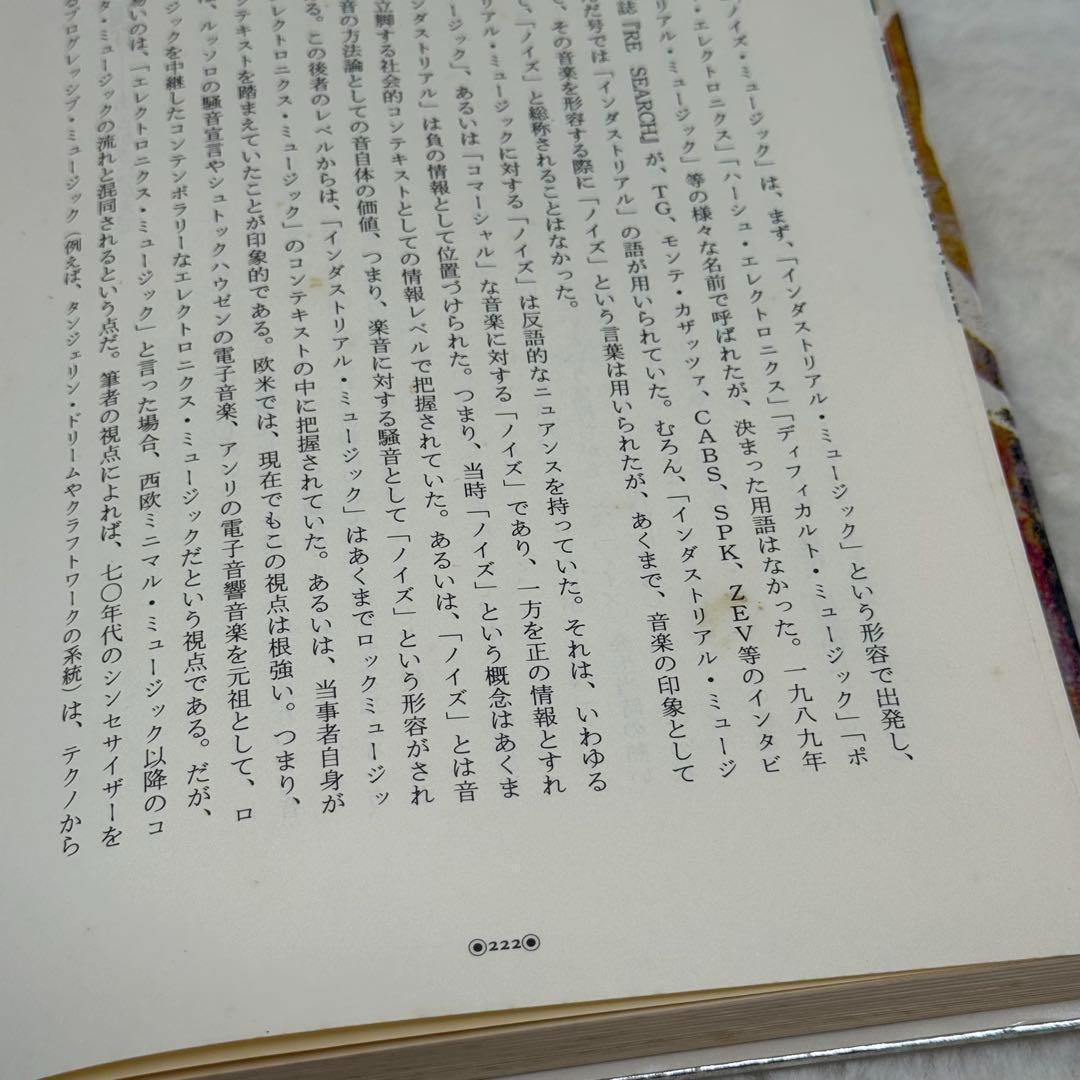 ノイズ・ミュージック」は、まず、「インダストリアル・ミュージック」という形容で出発し、
・エレクトロニクス」「ハーシュ・エレクトロニクス」「ディフィカルト・ミュージック」「ポ
リアル・ミュージック」等の様々な名前で呼ばれたが、決まった用語はなかった。一九八九年
誌『RE SEARCH』が、TG、モンテ・カザッツァ、CABS、SPK、ZEV等のインタビ
だ号では「インダストリアル」の語が用いられていた。むろん、「インダストリアル・ミュージ
、その音楽を形容する際に「ノイズ」という言葉は用いられたが、あくまで、音楽の印象として
、「ノイズ」と総称されることはなかった。
リアル・ミュージックに対する「ノイズ」は反語的なニュアンスを持っていた。それは、いわゆる
ジック」、あるいは「コマーシャル」な音楽に対する「ノイズ」であり、一方を正の情報とすれ
ンダストリアル」は負の情報として位置づけられた。つまり、当時「ノイズ」という概念はあくま
立脚する社会的コンテキストとしての情報レベルで把握されていた。あるいは、「ノイズ」とは音
音の方法論としての音自体の価値、つまり、楽音に対する騒音として「ノイズ」という形容がされ
る。この後者のレベルからは、「インダストリアル・ミュージック」はあくまでロックミュージッ
レクトロニクス・ミュージック」のコンテキストの中に把握されていた。あるいは、当事者自身が
テキストを踏まえていたことが印象的である。欧米では、現在でもこの視点は根強い。つまり、
は、ルッソロの騒音宣言やシュトックハウゼンの電子音楽、アンリの電子音響音楽を元祖として、ロ
ジックを中継したコンテンポラリーなエレクトロニクス・ミュージックだという視点である。だが、
易いのは、「エレクトロニクス・ミュージック」と言った場合、西欧ミニマル・ミュージック以降のコ
タ・ミュージックの流れと混同されるという点だ。筆者の視点によれば、七〇年代のシンセサイザーを
るプログレッシブ・ミュージック（例えば、タンジェリン・ドリームやクラフトワークの系統）は、テクノから
222